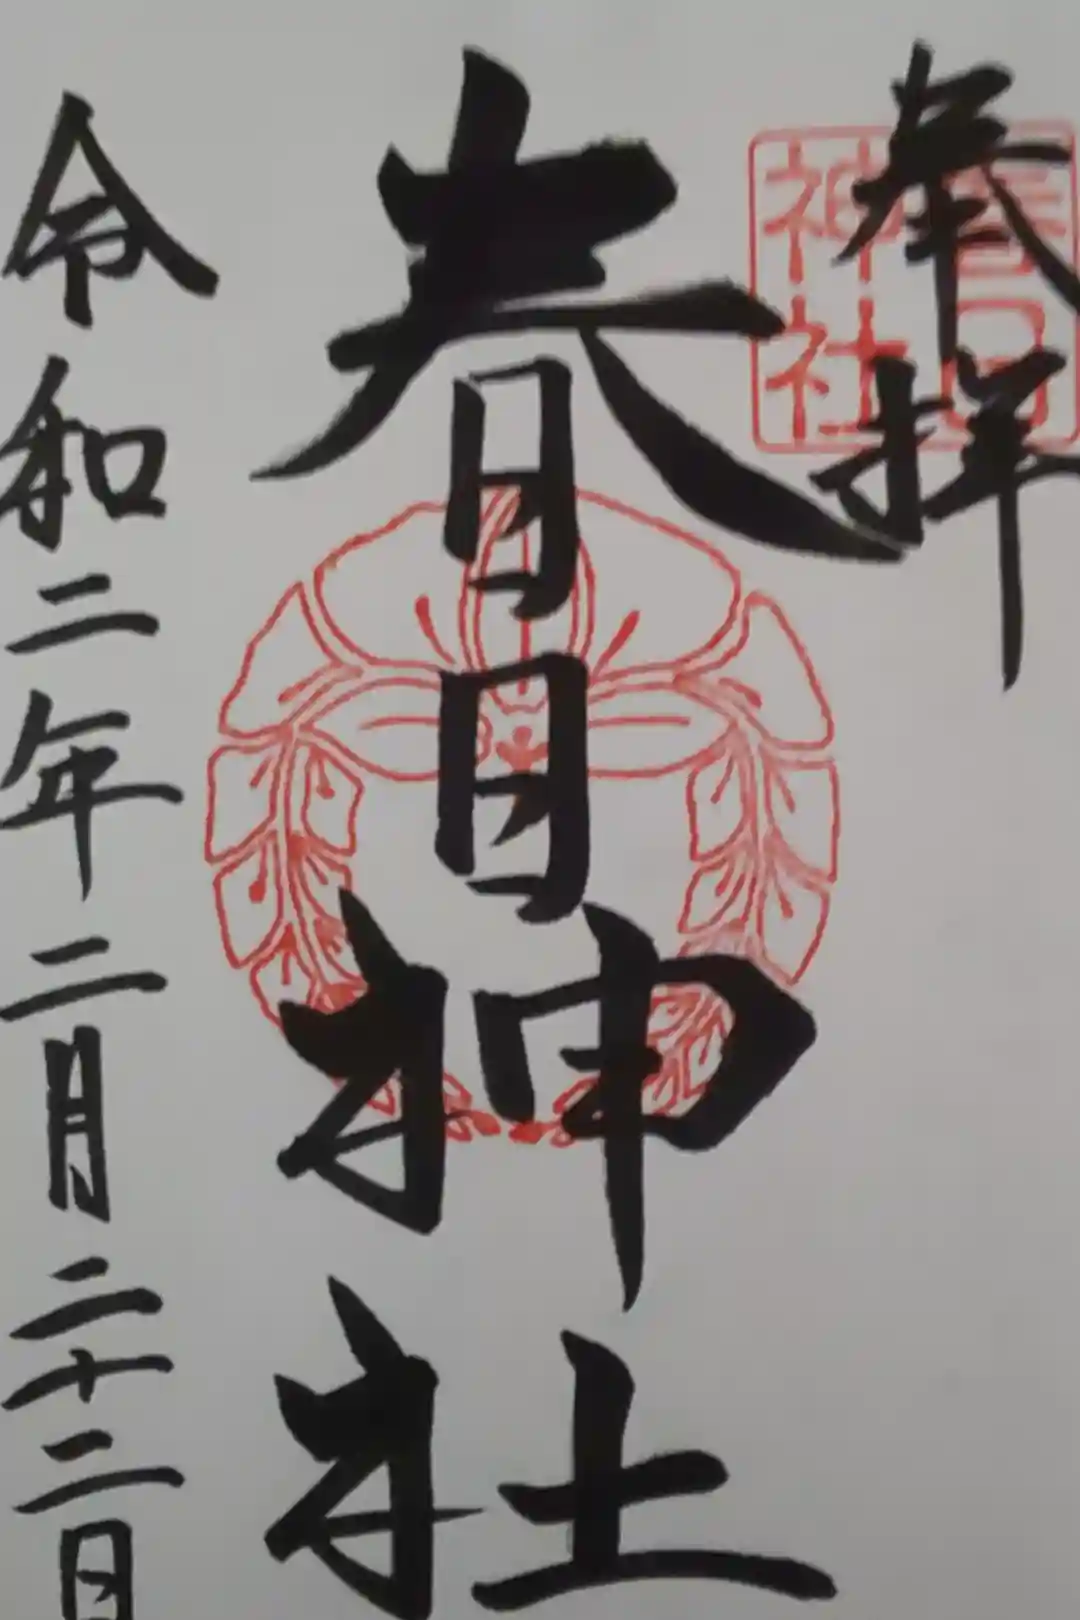 奉拝
春日神社
春日神社
令和二年二月二十二日